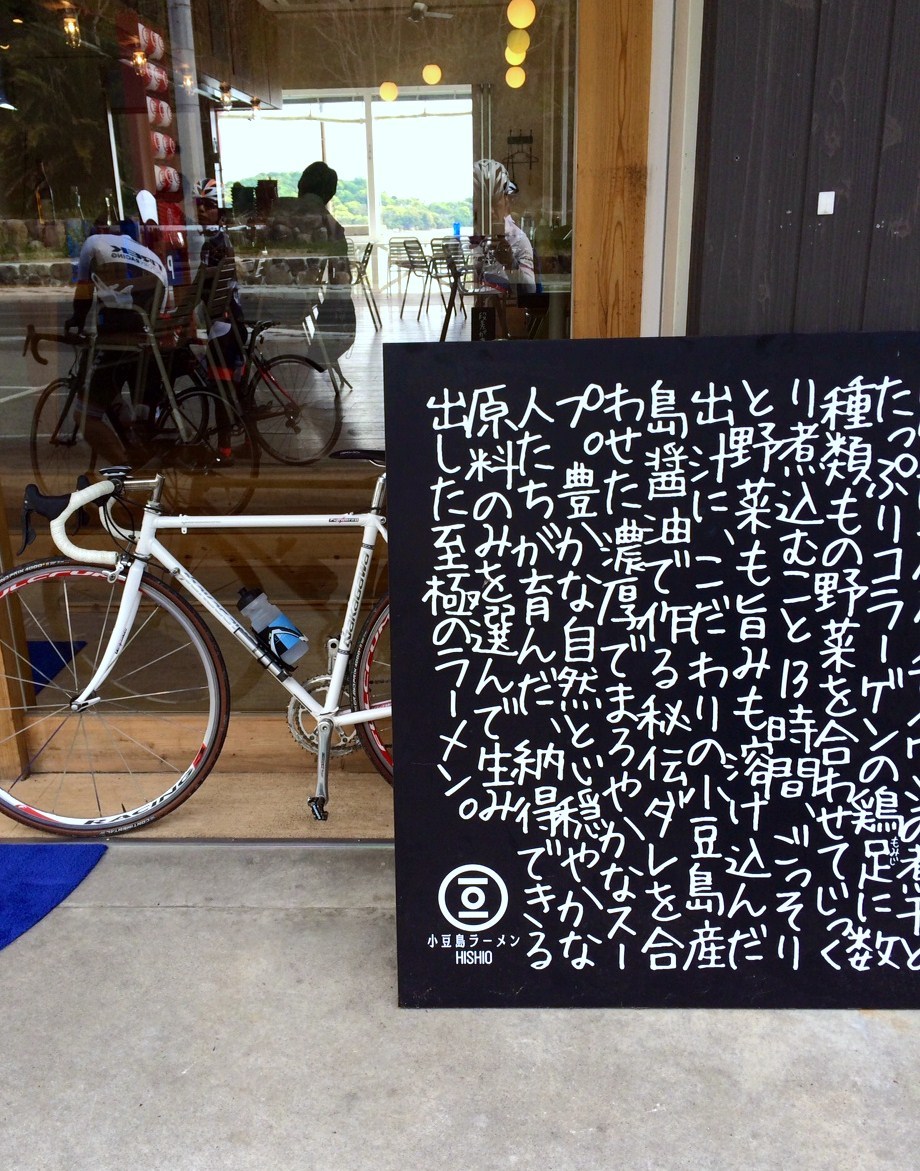 の煮干と
たっぷりコラーゲンの鶏足に数
もみじ
種類もの野菜を合わせてじっく
り煮込むこと13時間、ごっそり
と野菜も旨みも溶け込んだ
出汁に、こだわりの小豆島産
島醤油で作る秘伝ダレを合
わせた濃厚でまろやかなスー
プ。豊かな自然と、穏やかな
人たちが育んだ、納得できる
原料のみを選んで生み
出した至極のラーメン。
小豆島ラーメン
HISHIO
RACING